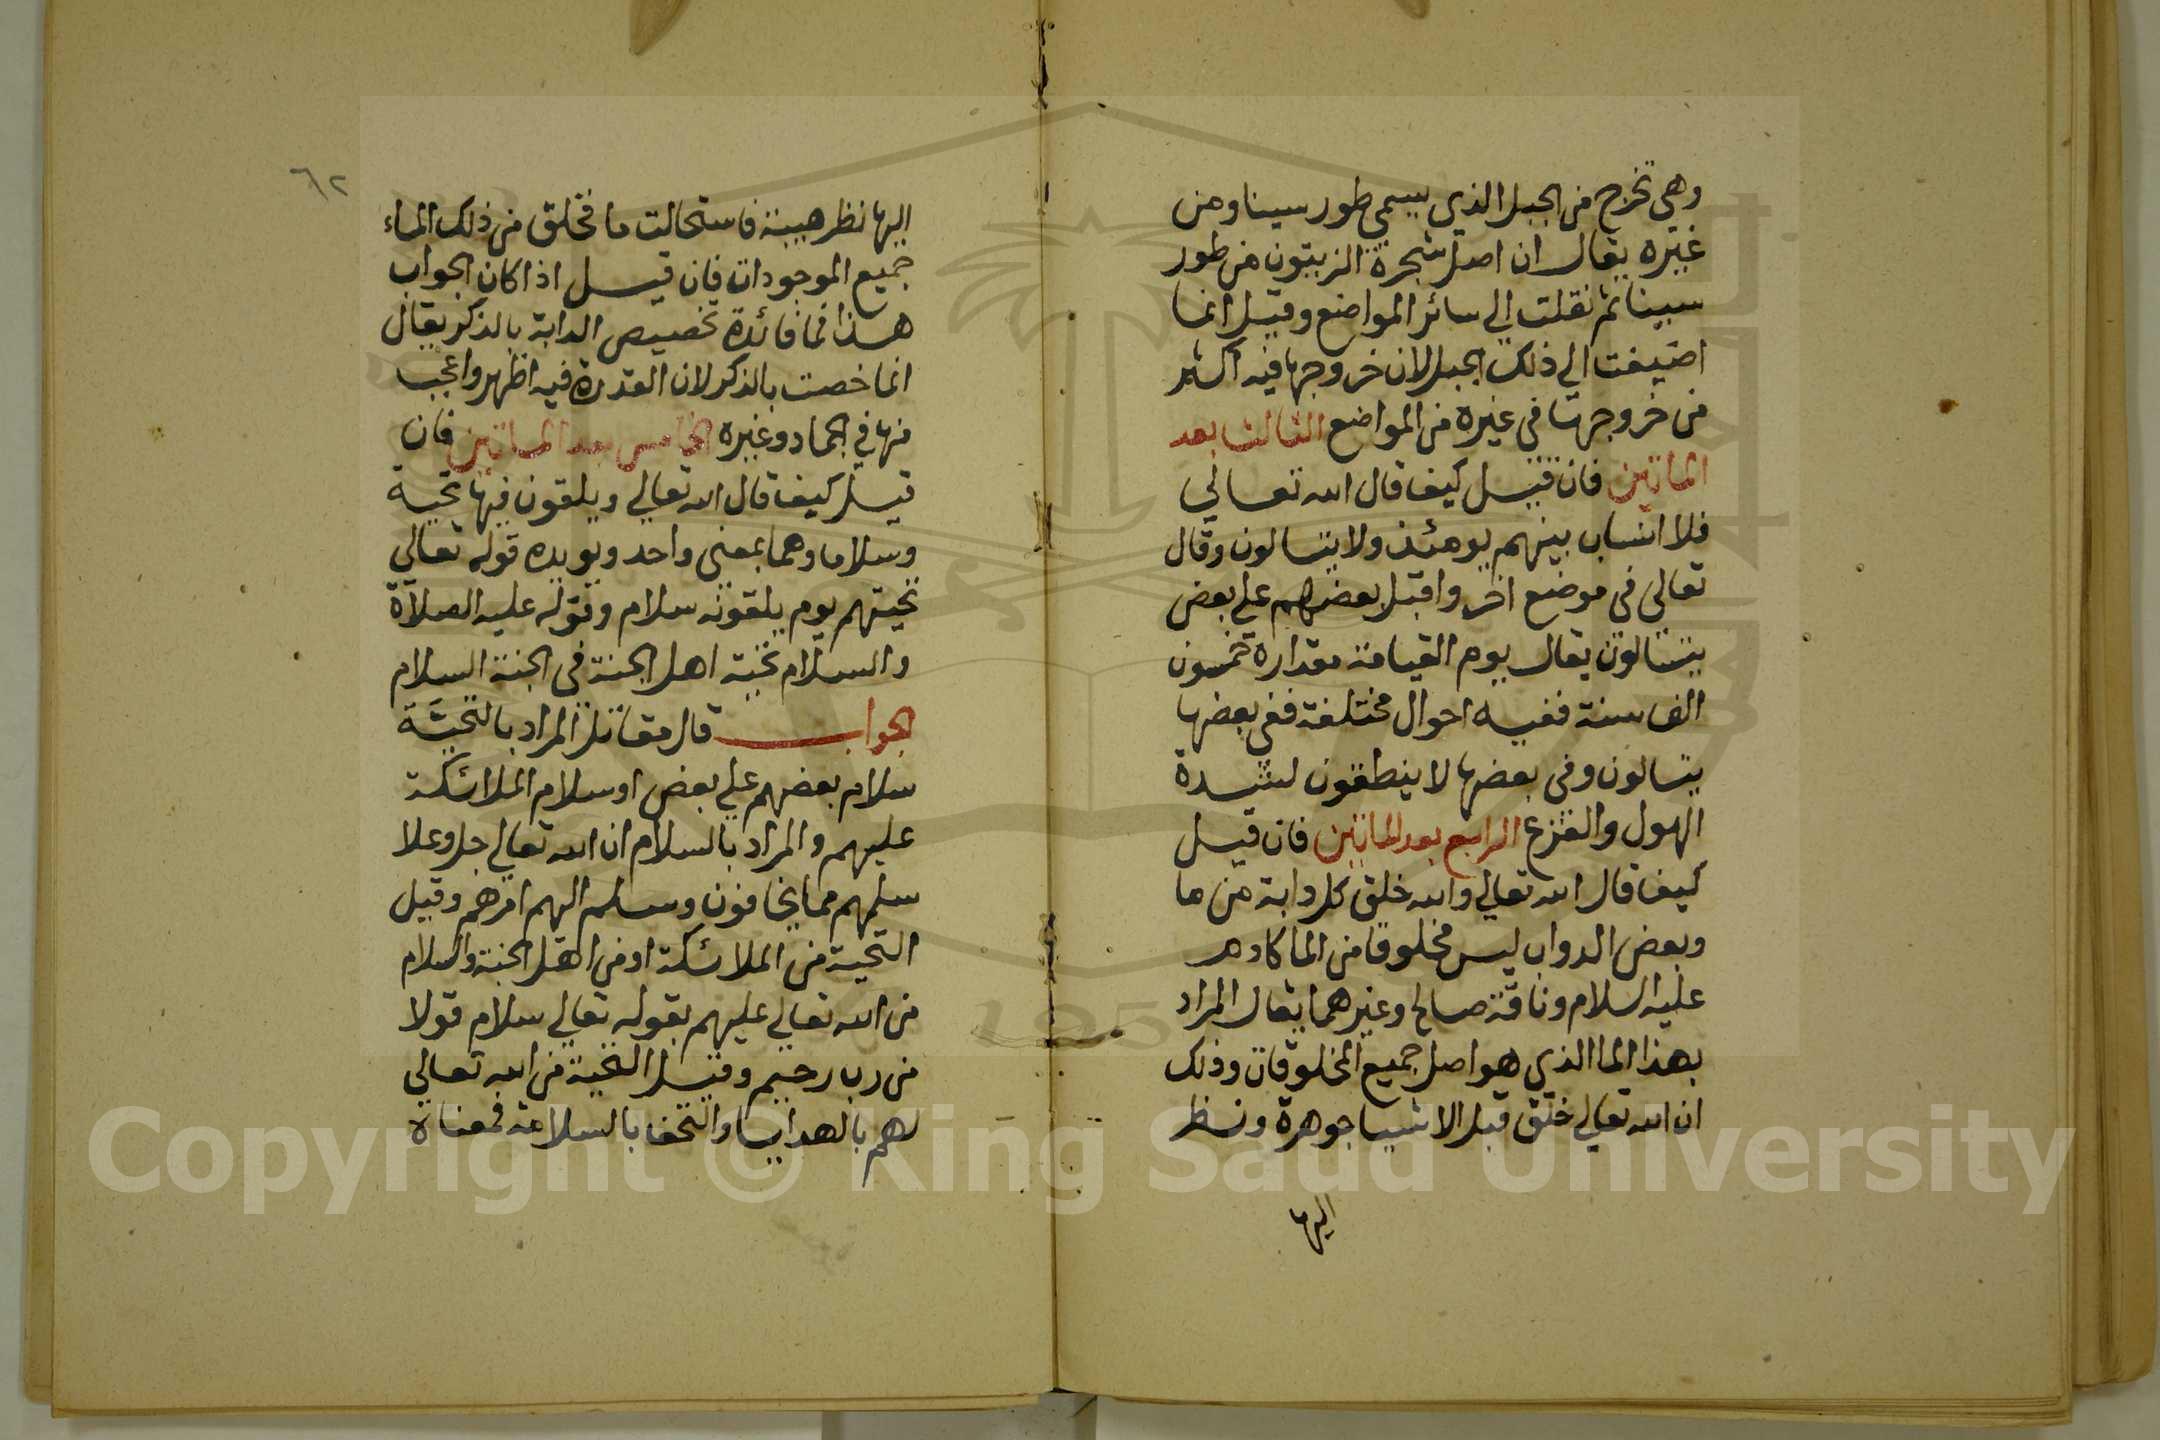 وهي تخرج من الجبل الذي يسمي طور سينا ومن
غيره يقال ان اصل شجرة الزيتون من طور
سينا ثم نقلت الي سائر المواضع وقيل انما
اضيفت الي ذلك الجبل لان خروجها فيه اكثر
من خروجها في غيره من المواضع الثالث بعد
الماتين فان قيل كيف قال الله تعالي
فلا انساب بينهم يومئذ ولا يتسالون وقال
تعالى في موضع اخر واقبل بعضهم علي بعض
يتسالون يقال يوم القيامة مقداره خمسون
الف سنة ففيه احوال مختلفة ففي بعضها
يتسالون وفي بعضها لا ينطقون لشدة
الهول والفزع الرابع بعد الماتين فان قيل
كيف قال الله تعالي والله خلق كل دابة من ما
وبعض الدواب ليس مخلوقا من الما كادم
عليه السلام وناقة صالح وغيرهما يقال المراد
بهذا الما الذي هو اصل جميع المخلوقات وذلك
ان الله تعالي خلق قبل الاشيا جوهرة ونظر
اليها
٦٢
اليها نظر هيبة فاستحالت ما فخلق من ذلك الماء
جميع الموجودات فان قيل اذا كان الجواب
هذا فما فائدة تخصيص الدابة بالذكر يقال
انما خصت بالذكر لان القدرة فيه اظهر واعجب
منها في الجماد وغيره الخامس بعد الماتين فان
قيل كيف قال الله تعالي ويلقون فيها تحية
وسلاما وهما بمعنى واحد ويويده قوله تعالي
تحيتهم يوم يلقونه سلام وقوله عليه الصلاة
والسلام تحية اهل الجنة في الجنة السلام
الجواب قال مقاتل المراد بالتحية
سلام بعضهم علي بعض او سلام الملائكة
عليهم والمراد بالسلام ان الله تعالي جل وعلا
سلمهم مما يخافون وسلم الهم امرهم وقيل
التحية من الملائكة او من اهل الجنة والسلام
من الله تعالي عليهم بقوله تعالي سلام قولا
من رب رحيم وقيل التحية من الله تعالي
لهم بالهدايا والتحف بالسلامة فمعناه
Copyright © King Saud University